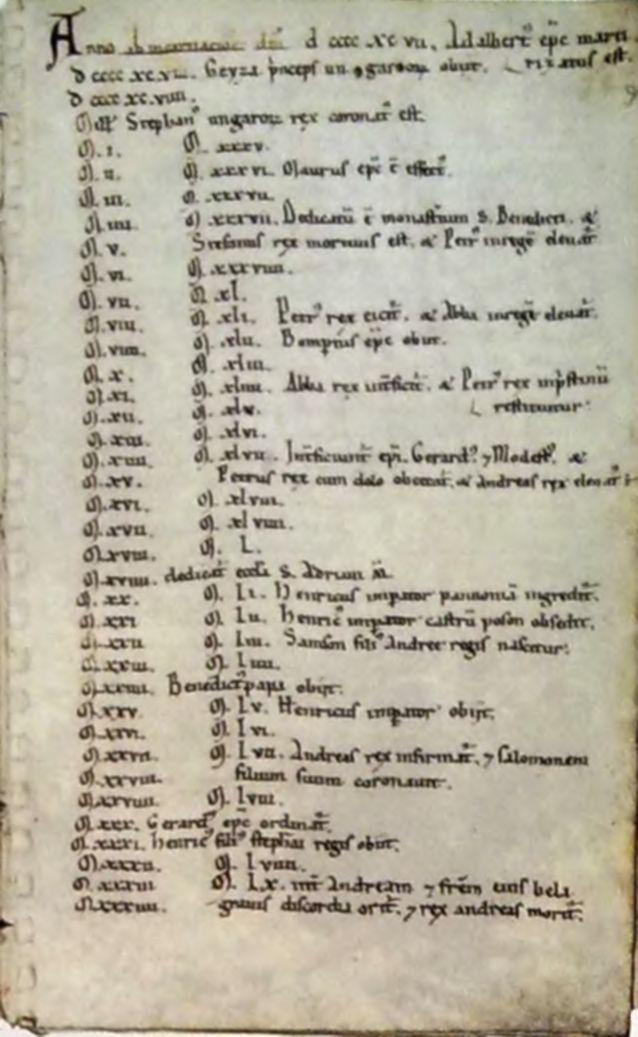 Anno ab incarnacione dnī d cccc xc vii. Adalbert' epc marti
d cccc xc viii. Geyza p'nceps ungaroꝝ obiit. rizatus est.
d cccc xc viiii.
M Stephan' ungaroꝝ rex coronat' est.
M. i. M. xxxv.
M. ii. M. xxxvi. Maurus epc ē effect'.
M. iii. M. xxxvii.
M. iiii. M. xxxviii. Dedicatū ē monast'ium S. Benedicti. &
M. v. Stefanus rex mortuus est. & Petr' in regē eleuat'
M. vi. M. xxxviiii.
M. vii. M. xl.
M. viii. M. xli. Petr' rex eicit'. & Abba in regē eleuat'.
M. viiii. M. xlii. Bonip'tus epc obiit.
M. x. M. xliii.
M. xi. M. xliiii. Abba rex int'ficit'. & Petr' rex in p'stinū
M. xii. M. xlv. restituitur.
M. xiii. M. xlvi.
M. xiiii. M. xlvii. Int'ficiunt' epi. Gerard' ⁊ Modest'. &
M. xv. Petrus rex cum dolo obcecat'. & Andreas rex eleuat'
M. xvi. M. xlviii.
M. xvii. M. xl viiii.
M. xviii. M. L.
M. xviiii. dedicat' eccła S. Adriani M.
M. xx. M. Li. Henricus imp̄ator pannoniā ingredit'.
M. xxi M. Lii. Henric' imp̄ator castrū poson obsedit.
M. xxii M. liii. Salomon fili' Andree regis nascitur.
M. xxiii. M. liiii.
M. xxiiii. Benedict' papa obiit.
M. xxv. M. lv. Henricus imp̄ator obiit.
M. xxvi. M. lvi.
M. xxvii. M. lvii. Andreas rex infirmat'. ⁊ Salomonem
M. xxviii. filium suum coronauit.
M. xxviiii. M. lviii.
M. xxx. Gerard' epc ordinat'.
M. xxxi. Henric' fili' stephai regis obiit.
M. xxxii. M. lviiii.
M. xxxiii M. lx. int' Andream ⁊ frēm eius bela
M. xxxiiii. grauis discordia orit'. ⁊ rex andreas morit'.